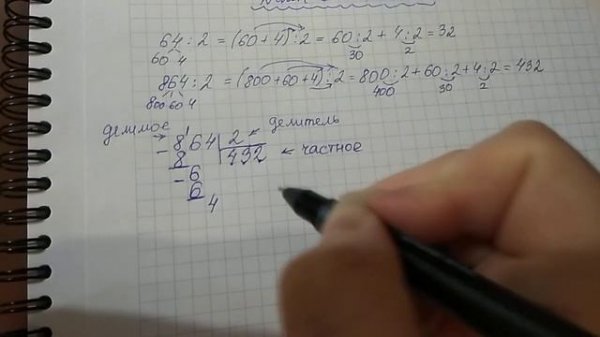 64 : 2 = (60+4) : 2 = 60 : 2 + 4 : 2 = 32
60 4 30 2
864 : 2 = (800+60+4) : 2 = 800 : 2 + 60 : 2 + 4 : 2 = 432
800 60 4 400 30 2
делимое
- 864 | 2 делитель
8 432 частное
- 6
6
4